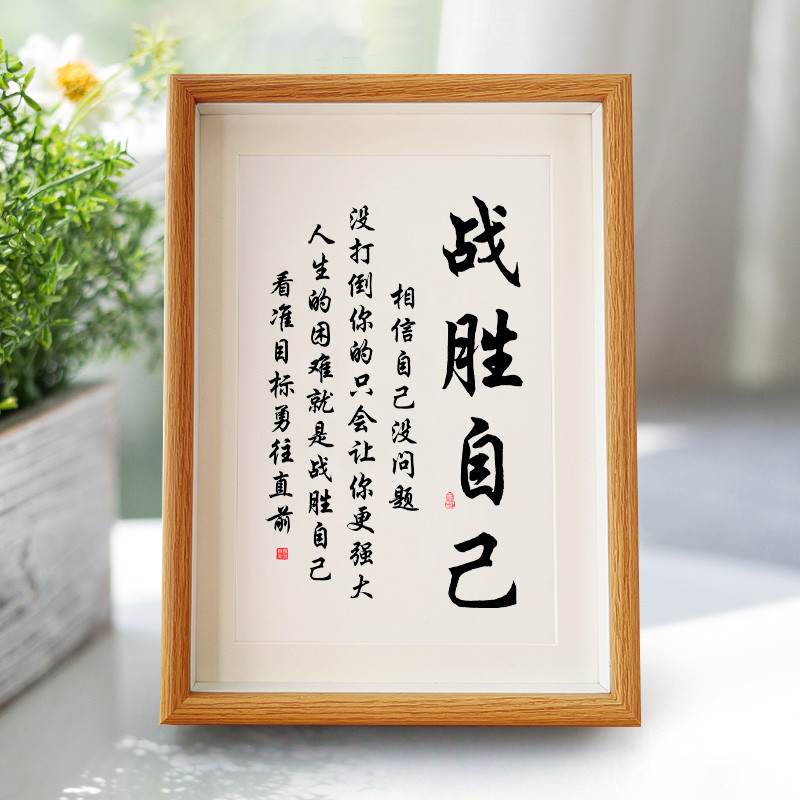 战胜自己
相信自己没问题
没打倒你的只会让你更强大
人生的困难就是战胜自己
看准目标勇往直前